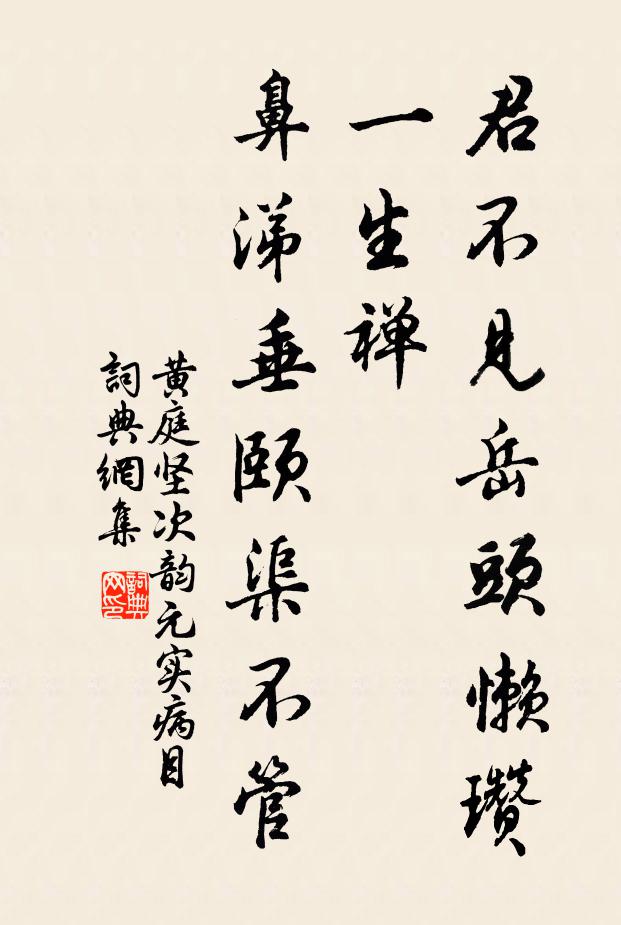 君不见岳頭懒瓚
一生禅
鼻涕垂颐渠不管
黄庭坚次韵元实病目
詞典網集
詞典网印